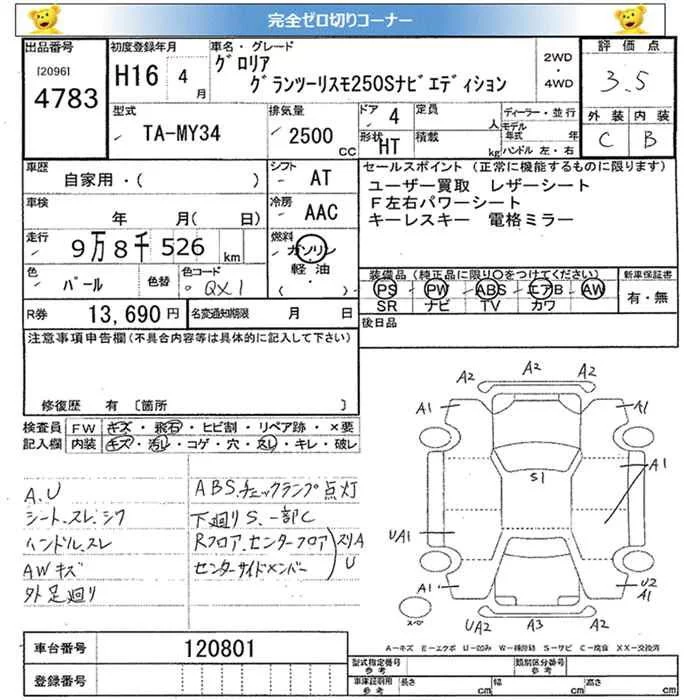 完全ゼロ切りコーナー
出品番号
[2096]
4783
初度登録年月
H16 4 月
車名・グレード
グロリア
グランツーリスモ250Sナビエディション
2WD
・
4WD
評価点
3.5
外装 内装
C B
型式
TA-MY34
排気量
2500 CC
ドア 4
形状 HT
定員 人
積載 kg
ディーラー・並行
モデル年式 年
ハンドル 左・右
車歴
自家用・( )
シフト
AT
車検
年 月( 日)
冷房
AAC
走行
9万8千526 km
燃料
ガソリン
軽油
・( )
色
パール
色替
色コード
QX1
R券 13,690円
名変通知期限 月 日
セールスポイント(正常に機能するものに限ります)
ユーザー買取 レザーシート
F左右パワーシート
キーレスキー 電格ミラー
装備品(純正品に限り〇をつけてください)
PS PW ABS エアB AW
SR ナビ TV カワ
新車保証書
有・無
後日品
注意事項申告欄(不具合内容等は具体的に記入して下さい)
修復歴 有 [箇所 ]
検査員 FW キズ・飛石・ヒビ割・リペア跡・×要
記入欄 内装 キズ・汚レ・コゲ・穴・スレ・キレ・破レ
A.U
シート.スレ.シワ
ハンドル.スレ
AWキズ
外足廻り
ABS.チェックランプ点灯
下廻りS.一部C
Rフロア.センターフロア
センターサイドメンバー
スリA
U
A2 A2 A2
A1 A1
S1
A1
UA1
A1
U2
A1
UA2 A3 A2
A=キズ E=エクボ U=凹み W=補修跡 S=サビ C=腐食 XX=交換済
車台番号 120801
登録番号
型式指定番号
参考
類別区分番号
参考
車庫証明用
参考
長さ cm 幅 cm 高さ cm